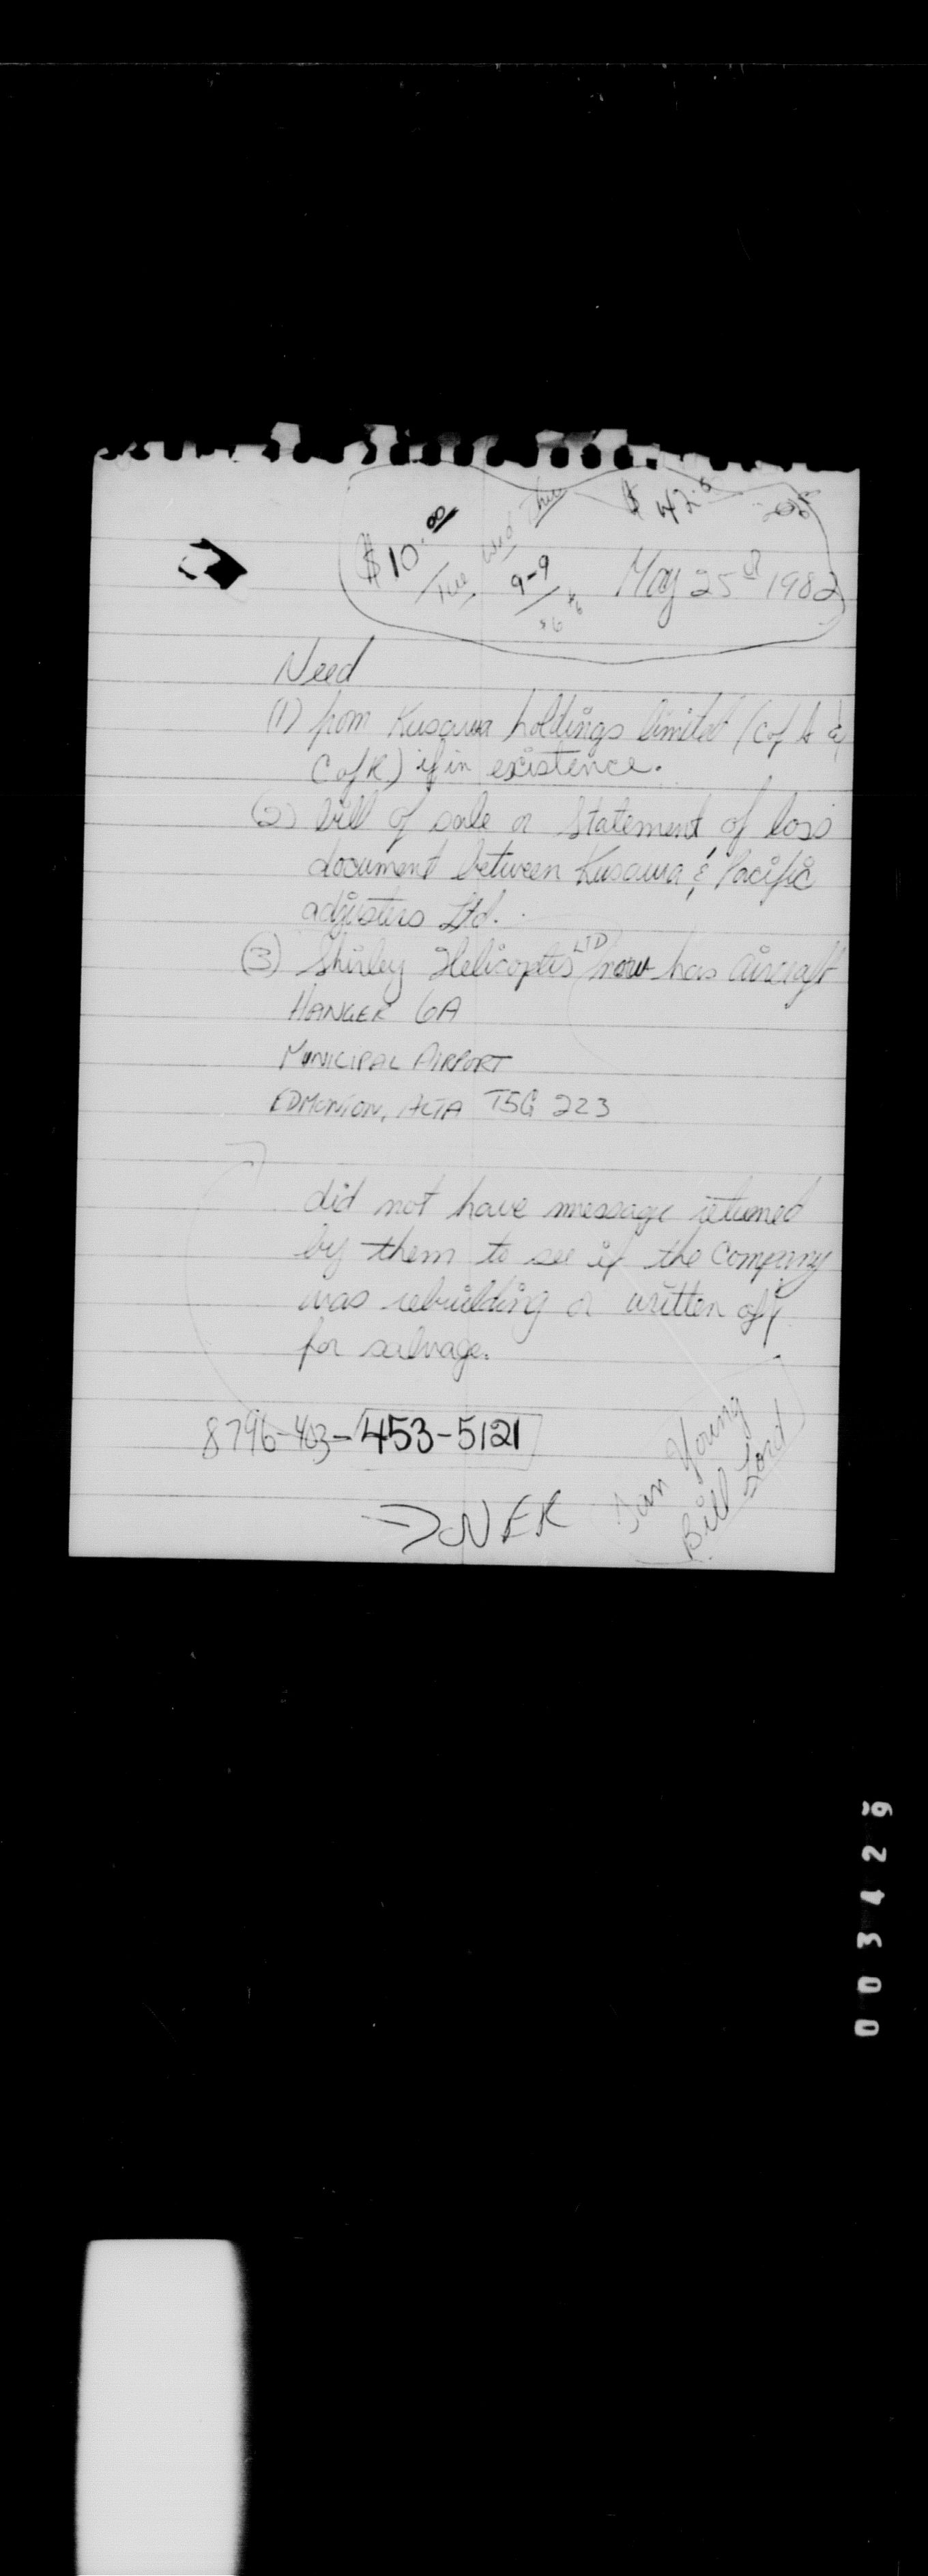 $10.00 Tue Wed Thu $42.5
9-9
May 25th 1982
Need
(1) from Kusawa holdings limited (C of A &
C of R) if in existence.
(2) bill of sale or Statement of loss
document between Kusawa & Pacific
adjusters Ltd.
(3) Shirley Helicopters LTD now has aircraft
HANGER 6A
MUNICIPAL AIRPORT
EDMONTON, ALTA T5G 2Z3
did not have message returned
by them to see if the Company
was rebuilding or written off
for salvage.
8796-403-453-5121
Young
Bill Lord
OVER
003429